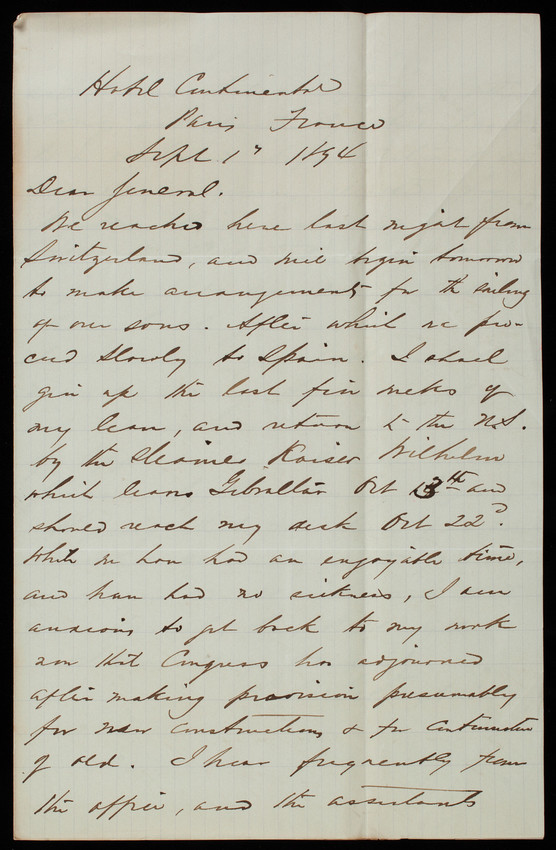 Hotel Continental
Paris France
Sept. 1" 1894
Dear General.
We reached here last night from
Switzerland, and will begin tomorrow
to make arrangements for the
of our sons. After which we pro-
ceed slowly to Spain. I shall
give up the last five weeks of
my leave, and return to the U.S.
by the Steamer Kaiser Wilhelm
which leaves Gibraltar Oct 13th and
should reach my desk Oct 22d.
While we have had an enjoyable time,
and have had no sickness, I am
anxious to get back to my work
now that Congress has adjourned
after making provision presumably
for new constructions & for continuation
of old. I hear frequently from
the office, and the assistants